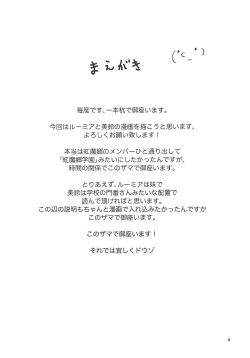 まえがき
(*c_*)
毎度です、一本杭で御座います。
今回はルーミアと美鈴の漫画を描こうと思います、
よろしくお願い致します！
本当は紅魔郷のメンバーひと通り出して
「紅魔郷学園」みたいにしたかったんですが、
時間の関係でこのザマで御座います。
とりあえず、ルーミアは妹で
美鈴は学校の門番さんみたいな配置で
読んで頂ければと思います。
この辺の説明もちゃんと漫画で入れ込みたかったんですが
このザマで御座います。
このザマで御座います！
それでは宜しくドウゾ
4